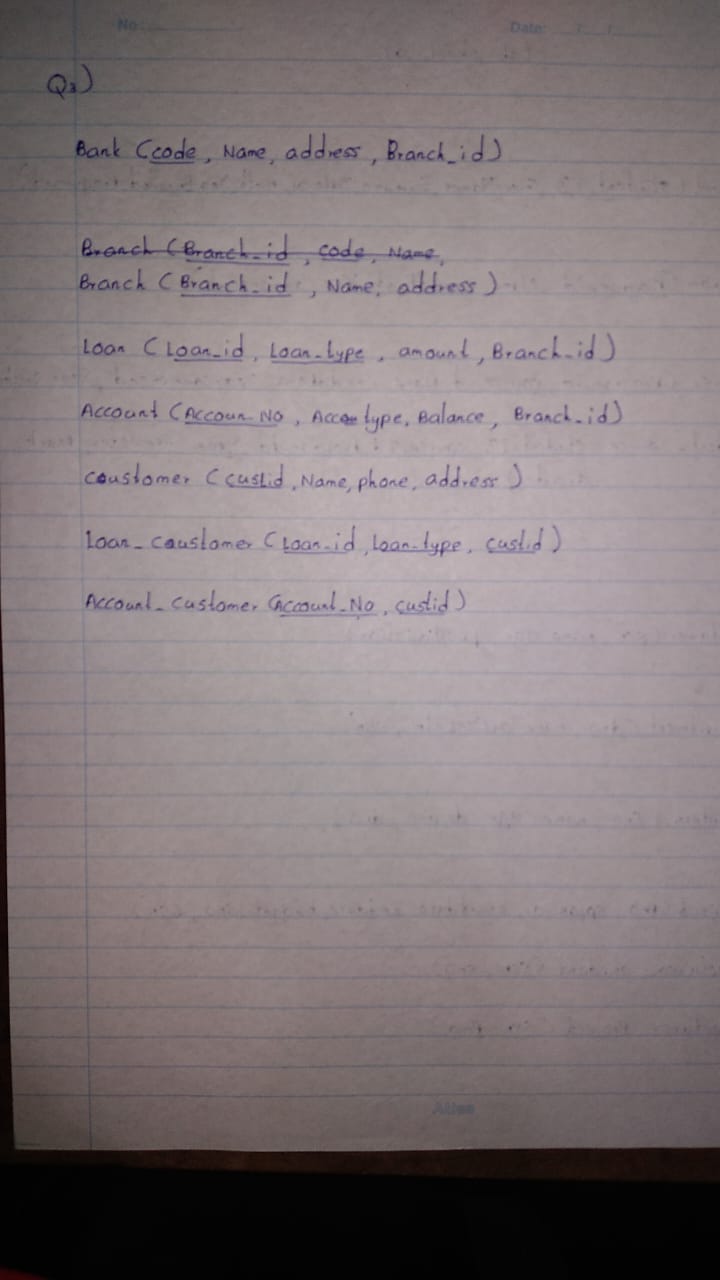 No: Date: / /
Q3)
Bank (code, Name, address, Branch_id)
Branch (Branch_id, code, Name,
Branch (Branch_id, Name, address)
Loan (Loan_id, Loan_type, amount, Branch_id)
Account (Accoun_No, type, Balance, Branch_id)
coustomer (custid, Name, phone, address)
Loan_caustomer (Loan_id, loan_type, custid)
Account_customer (Account_No, custid)
Atlas